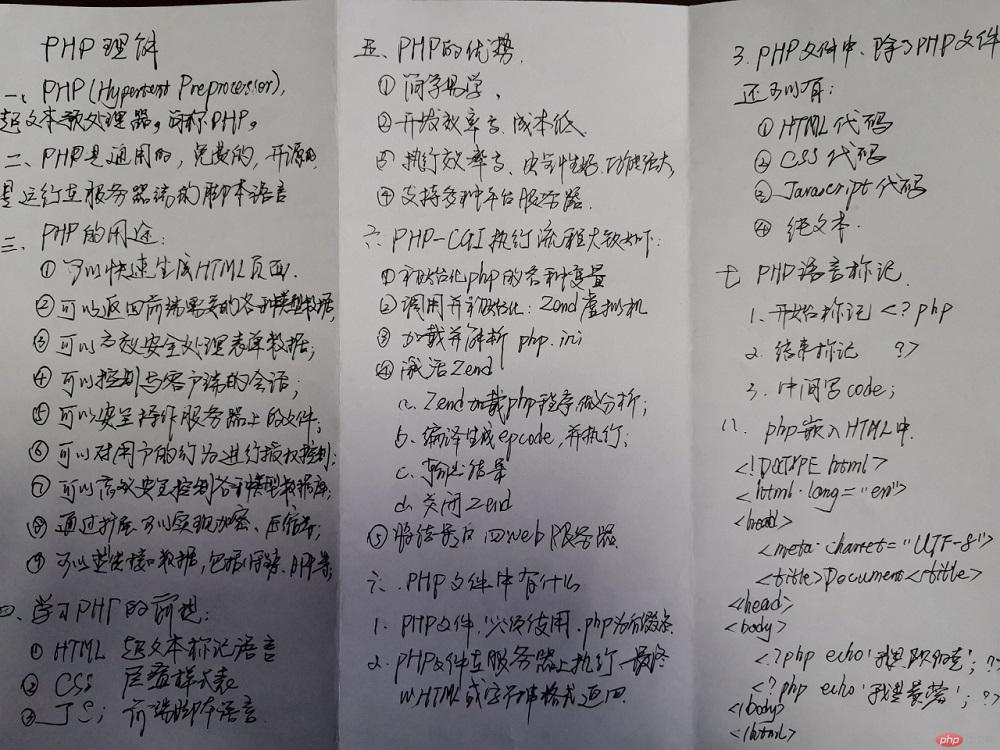 PHP理解
一、PHP(Hypertext Preprocessor),
超文本预处理器。简称PHP。
二、PHP是通用的,免费的,开源的
是运行在服务器端的脚本语言
三、PHP的用途:
① 可以快速生成HTML页面.
② 可以返回前端需要的各种模型数据,
③ 可以高效安全处理表单数据;
④ 可以控制与客户端的会话;
⑤ 可以安全操作服务器上的文件;
⑥ 可以对用户的行为进行授权控制;
⑦ 可以高效安全控制各种模型数据库;
⑧ 通过扩展可以实现加密、压缩等;
⑨ 可以 接口数据,包括 等;
四、学习PHP的前提:
① HTML 超文本标记语言
② CSS 层叠样式表
③ JS; 前端脚本语言.
五、PHP的优势.
① 简单易学、
② 开放效率高、成本低.
③ 执行效率高、安全性好、功能强大,
④ 支持多种平台服务器.
六、PHP-CGI执行流程大致如下:
① 初始化php的各种变量
② 调用并初始化:Zend虚拟机
③ 加载并解析 php.ini
④ 激活Zend
a. Zend加载php程序做分析;
b. 编译生成opcode,并执行;
c. 输出结果
d. 关闭Zend
⑤ 将结果返回Web服务器.
六、PHP文件中有什么
1. PHP文件,必须使用.php为后缀.
2. PHP文件在服务器上执行 最终
以HTML或字符串格式返回.
3. PHP文件中、除了PHP文件
还可以有:
① HTML代码
② CSS 代码
③ Javascript代码
④ 纯文本.
七 PHP语言标记.
1. 开始标记 <? php
2. 结束标记 ?>
3. 中间写code;
八. php嵌入HTML中.
<!DOCTYPE html>
<html lang="en">
<head>
<meta charset="UTF-8">
<title>Document</title>
</head>
<body>
<?php echo '我是 '; ?>
<?php echo '我是 '; ?>
</body>
</html>
php